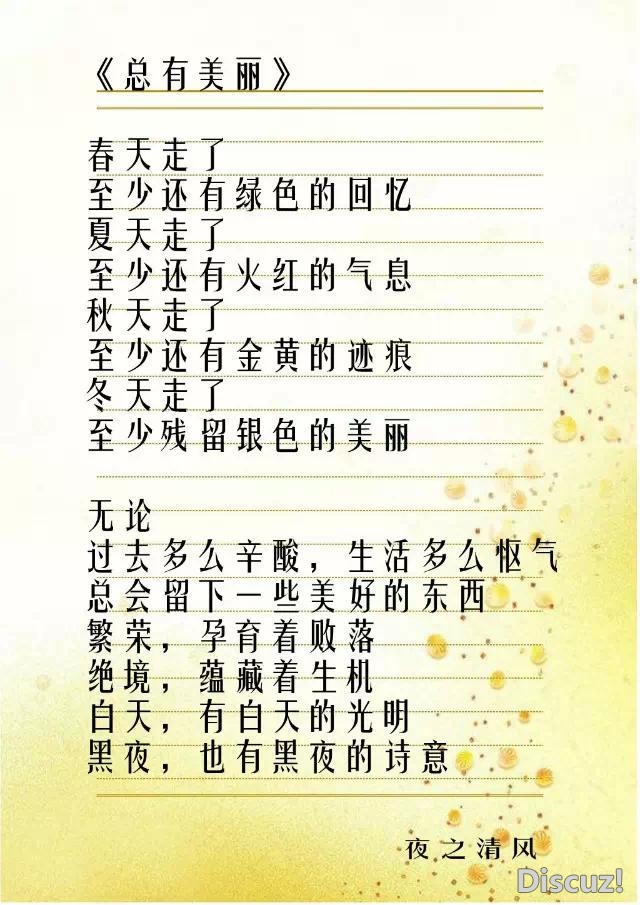 《总有美丽》
春天走了
至少还有绿色的回忆
夏天走了
至少还有火红的气息
秋天走了
至少还有金黄的迹痕
冬天走了
至少残留银色的美丽
无论
过去多么辛酸，生活多么怄气
总会留下一些美好的东西
繁荣，孕育着败落
绝境，蕴藏着生机
白天，有白天的光明
黑夜，也有黑夜的诗意
夜之清风
Discuz!